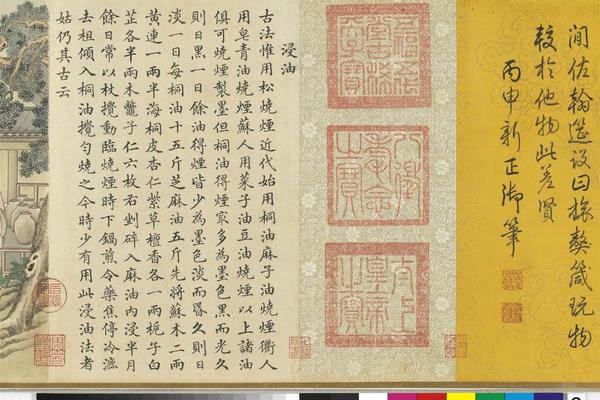 閒佐翰筵設曰旅獒箴玩物
較於他物此差賢
丙申新正御筆
五福五代堂古稀天子寶
八徵耄念之寶
太上皇帝之寶
浸油
古法惟用松燒煙近代始用桐油麻子油燒煙衢人
用皂青油燒煙蘇人用菜子油豆油燒煙以上諸油
俱可燒煙製墨但桐油得煙最多為墨色黑而光久
則日黑一日餘油得煙皆少為墨色淡而昏久則日
淡一日每桐油十五斤芝麻油五斤先將蘇木二兩
黃連一兩半海桐皮杏仁紫草檀香各一兩梔子白
芷各半兩木鼈子仁六枚右剉碎入麻油內浸半月
餘日常以杖攪動臨燒煙時下鍋煎令藥焦停冷漉
去柤傾入桐油攪勻燒之今時少有用此浸油法者
姑仍其古云